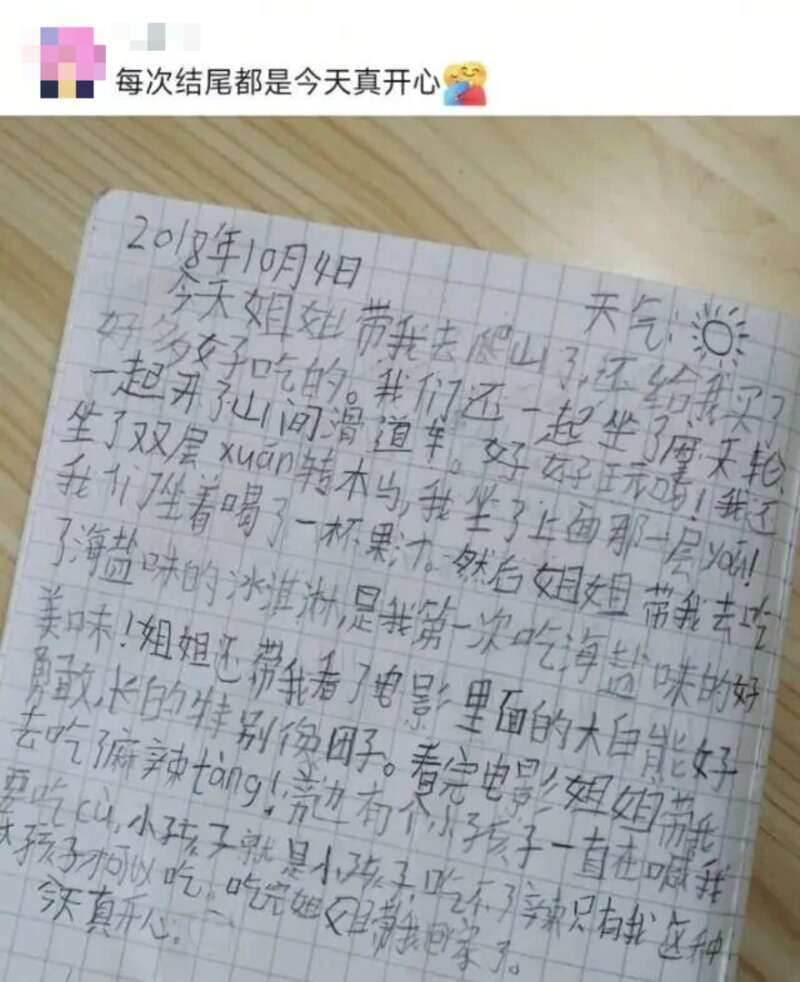 每次结尾都是今天真开心
2018年10月4日
天气:
今天姐姐带我去爬山了,还给我买了
好多好吃的。我们还一起坐了摩天轮、
一起开了山间滑道车。好好玩哦!我还
坐了双层xuán转木马,我坐了上面那一层you!
我们坐着喝了一杯果汁。然后姐姐带我去吃
了海盐味的冰淇淋,是我第一次吃海盐味的好
美味!姐姐还带我看了电影里面的大白熊好
勇敢,长的特别像团子。看完电影姐姐带我
去吃了麻辣tàng!旁边有个小孩子一直在喊我
要吃cù,小孩子就是小孩子吃不了辣只有我这种
大孩子可以吃。吃完姐姐带我回家了。
今天真开心。